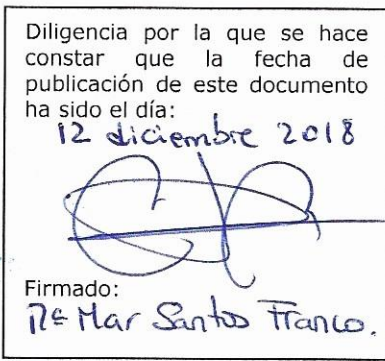 Diligencia por la que se hace
constar que la fecha de
publicación de este documento
ha sido el día:
12 diciembre 2018
Firmado:
Mª Mar Santos Franco.